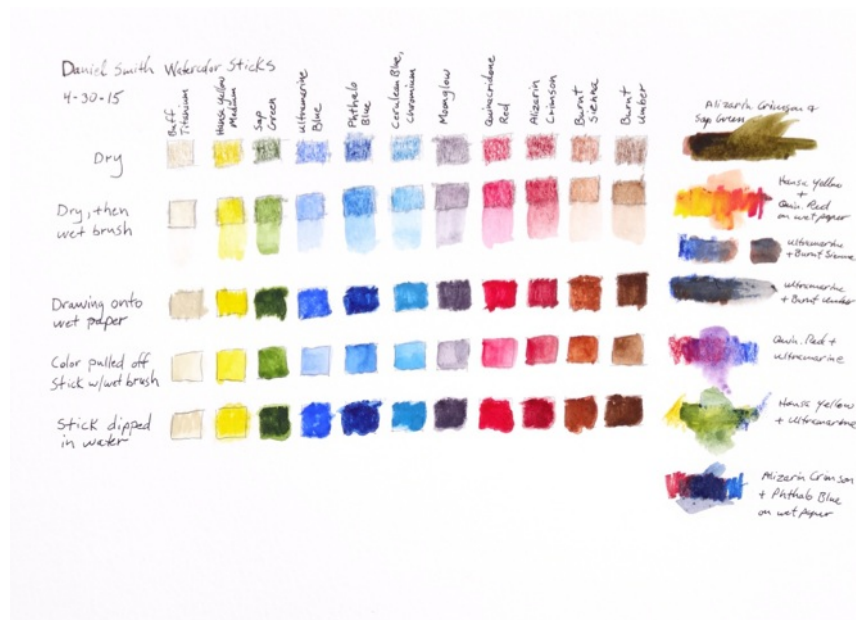 Daniel Smith Watercolor Sticks
4-30-15
Buff
Titanium
Hansa Yellow
Medium
Sap
Green
Ultramarine
Blue
Phthalo
Blue
Cerulean Blue,
Chromium
Moonglow
Quinacridone
Red
Alizarin
Crimson
Burnt
Sienna
Burnt
Umber
Dry
Dry, then
wet brush
Drawing onto
wet paper
Color pulled off
Stick w/wet brush
Stick dipped
in water
Alizarin Crimson +
Sap Green
Hansa Yellow
+
Quin. Red
on wet paper
Ultramarine
+ Burnt Sienna
Ultramarine
+ Burnt Umber
Quin. Red +
Ultramarine
Hansa Yellow
+ Ultramarine
Alizarin Crimson
+ Phthalo Blue
on wet paper